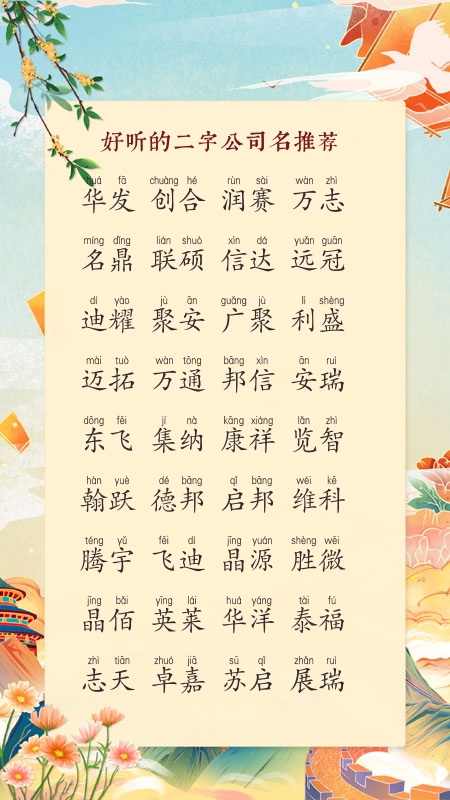 好听的二字公司名推荐
huá fā chuàng hé rùn sài wàn zhì
华发 创合 润赛 万志
míng dǐng lián shuò xìn dá yuǎn guān
名鼎 联硕 信达 远冠
dí yào jù ān guǎng jù lì shèng
迪耀 聚安 广聚 利盛
mài tuò wàn tōng bāng xìn ān ruì
迈拓 万通 邦信 安瑞
dōng fēi jí nà kāng xiáng lǎn zhì
东飞 集纳 康祥 览智
hàn yuè dé bāng qǐ bāng wéi kē
翰跃 德邦 启邦 维科
téng yǔ fēi dí jīng yuán shèng wēi
腾宇 飞迪 晶源 胜微
jīng bǎi yīng lái huá yáng tài fú
晶佰 英莱 华洋 泰福
zhì tiān zhuó jiā sū qǐ zhǎn ruì
志天 卓嘉 苏启 展瑞